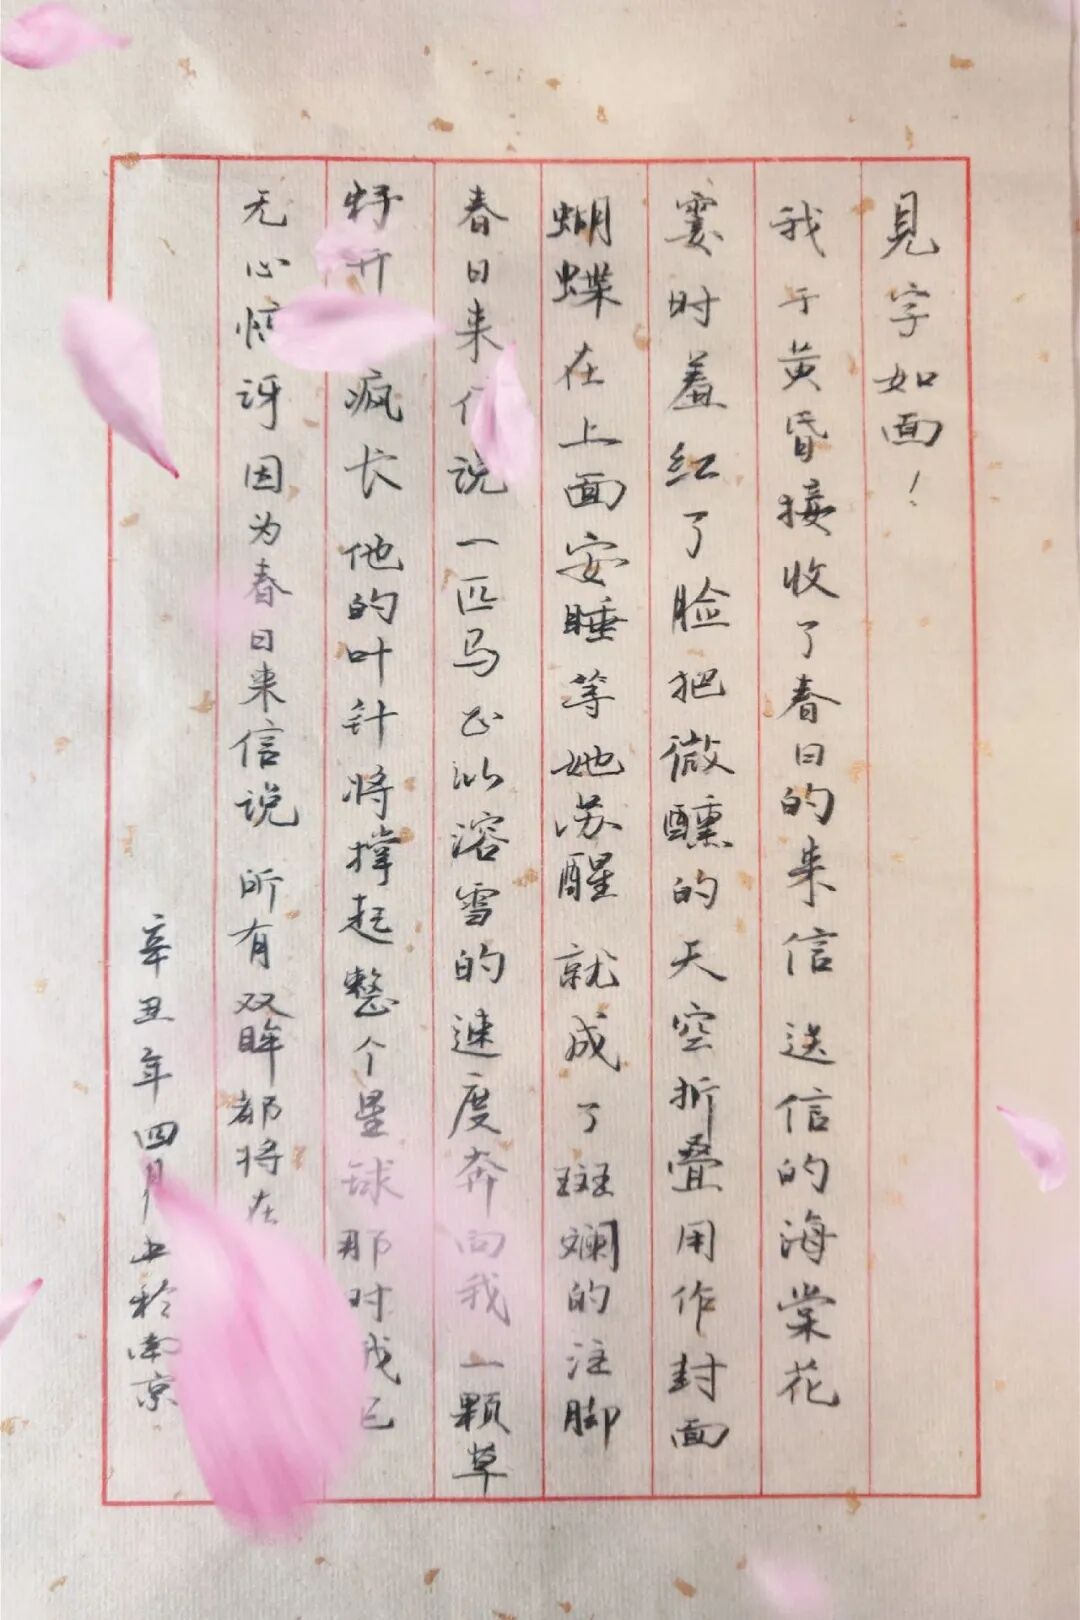 見字如面！
我于黄昏接收了春日的来信 送信的海棠花
霎时羞红了脸把微醺的天空折叠用作封面
蝴蝶在上面安睡等她苏醒就成了斑斓的注脚
春日来信说一匹马正以溶雪的速度奔向我一颗草
籽开疯长他的叶针将撑起整个星球那时我已
无心惊讶因为春日来信说 所有双眸都将在
辛丑年四月上於南京